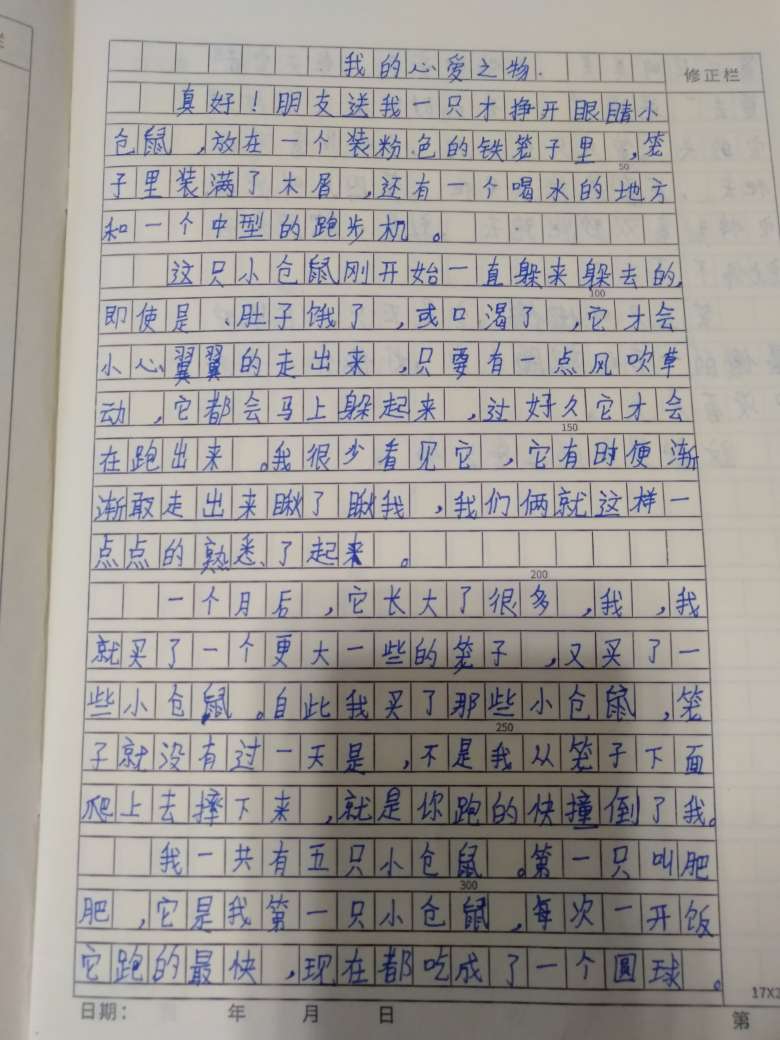 我的心爱之物.
修正栏
真好！朋友送我一只才挣开眼睛小
仓鼠，放在一个装粉色的铁笼子里，笼
50
子里装满了木屑，还有一个喝水的地方
和一个中型的跑步机。
这只小仓鼠刚开始一直躲来躲去的，
100
即使是、肚子饿了，或口渴了，它才会
小心翼翼的走出来，只要有一点风吹草
动，它都会马上躲起来，过好久它才会
150
在跑出来。我很少看见它，它有时便渐
渐敢走出来瞅了瞅我，我们俩就这样一
点点的熟悉、了起来。
200
一个月后，它长大了很多，我，我
就买了一个更大一些的笼子，又买了一
些小仓鼠。自此我买了那些小仓鼠，笼
250
子就没有过一天是，不是我从笼子下面
爬上去摔下来，就是你跑的快撞倒了我。
我一共有五只小仓鼠。第一只叫肥
300
肥，它是我第一只小仓鼠，每次一开饭
它跑的最快，现在都吃成了一个圆球。
17X2
日期： 年 月 日 第